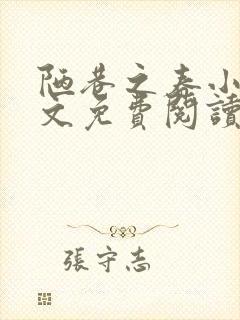 陋巷之春小
文免費閱讀
張守志